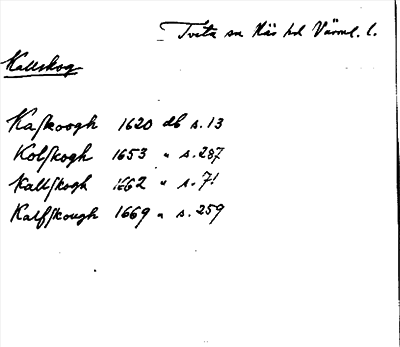 Tveta sn Näs hd Värml. l.
Kallskog
Kaſkoogh 1620 db s. 13
Kolſkogh 1653 " s. 287
Kallſkogh 1662 " s. 71
Kalfſkough 1669 " s. 259